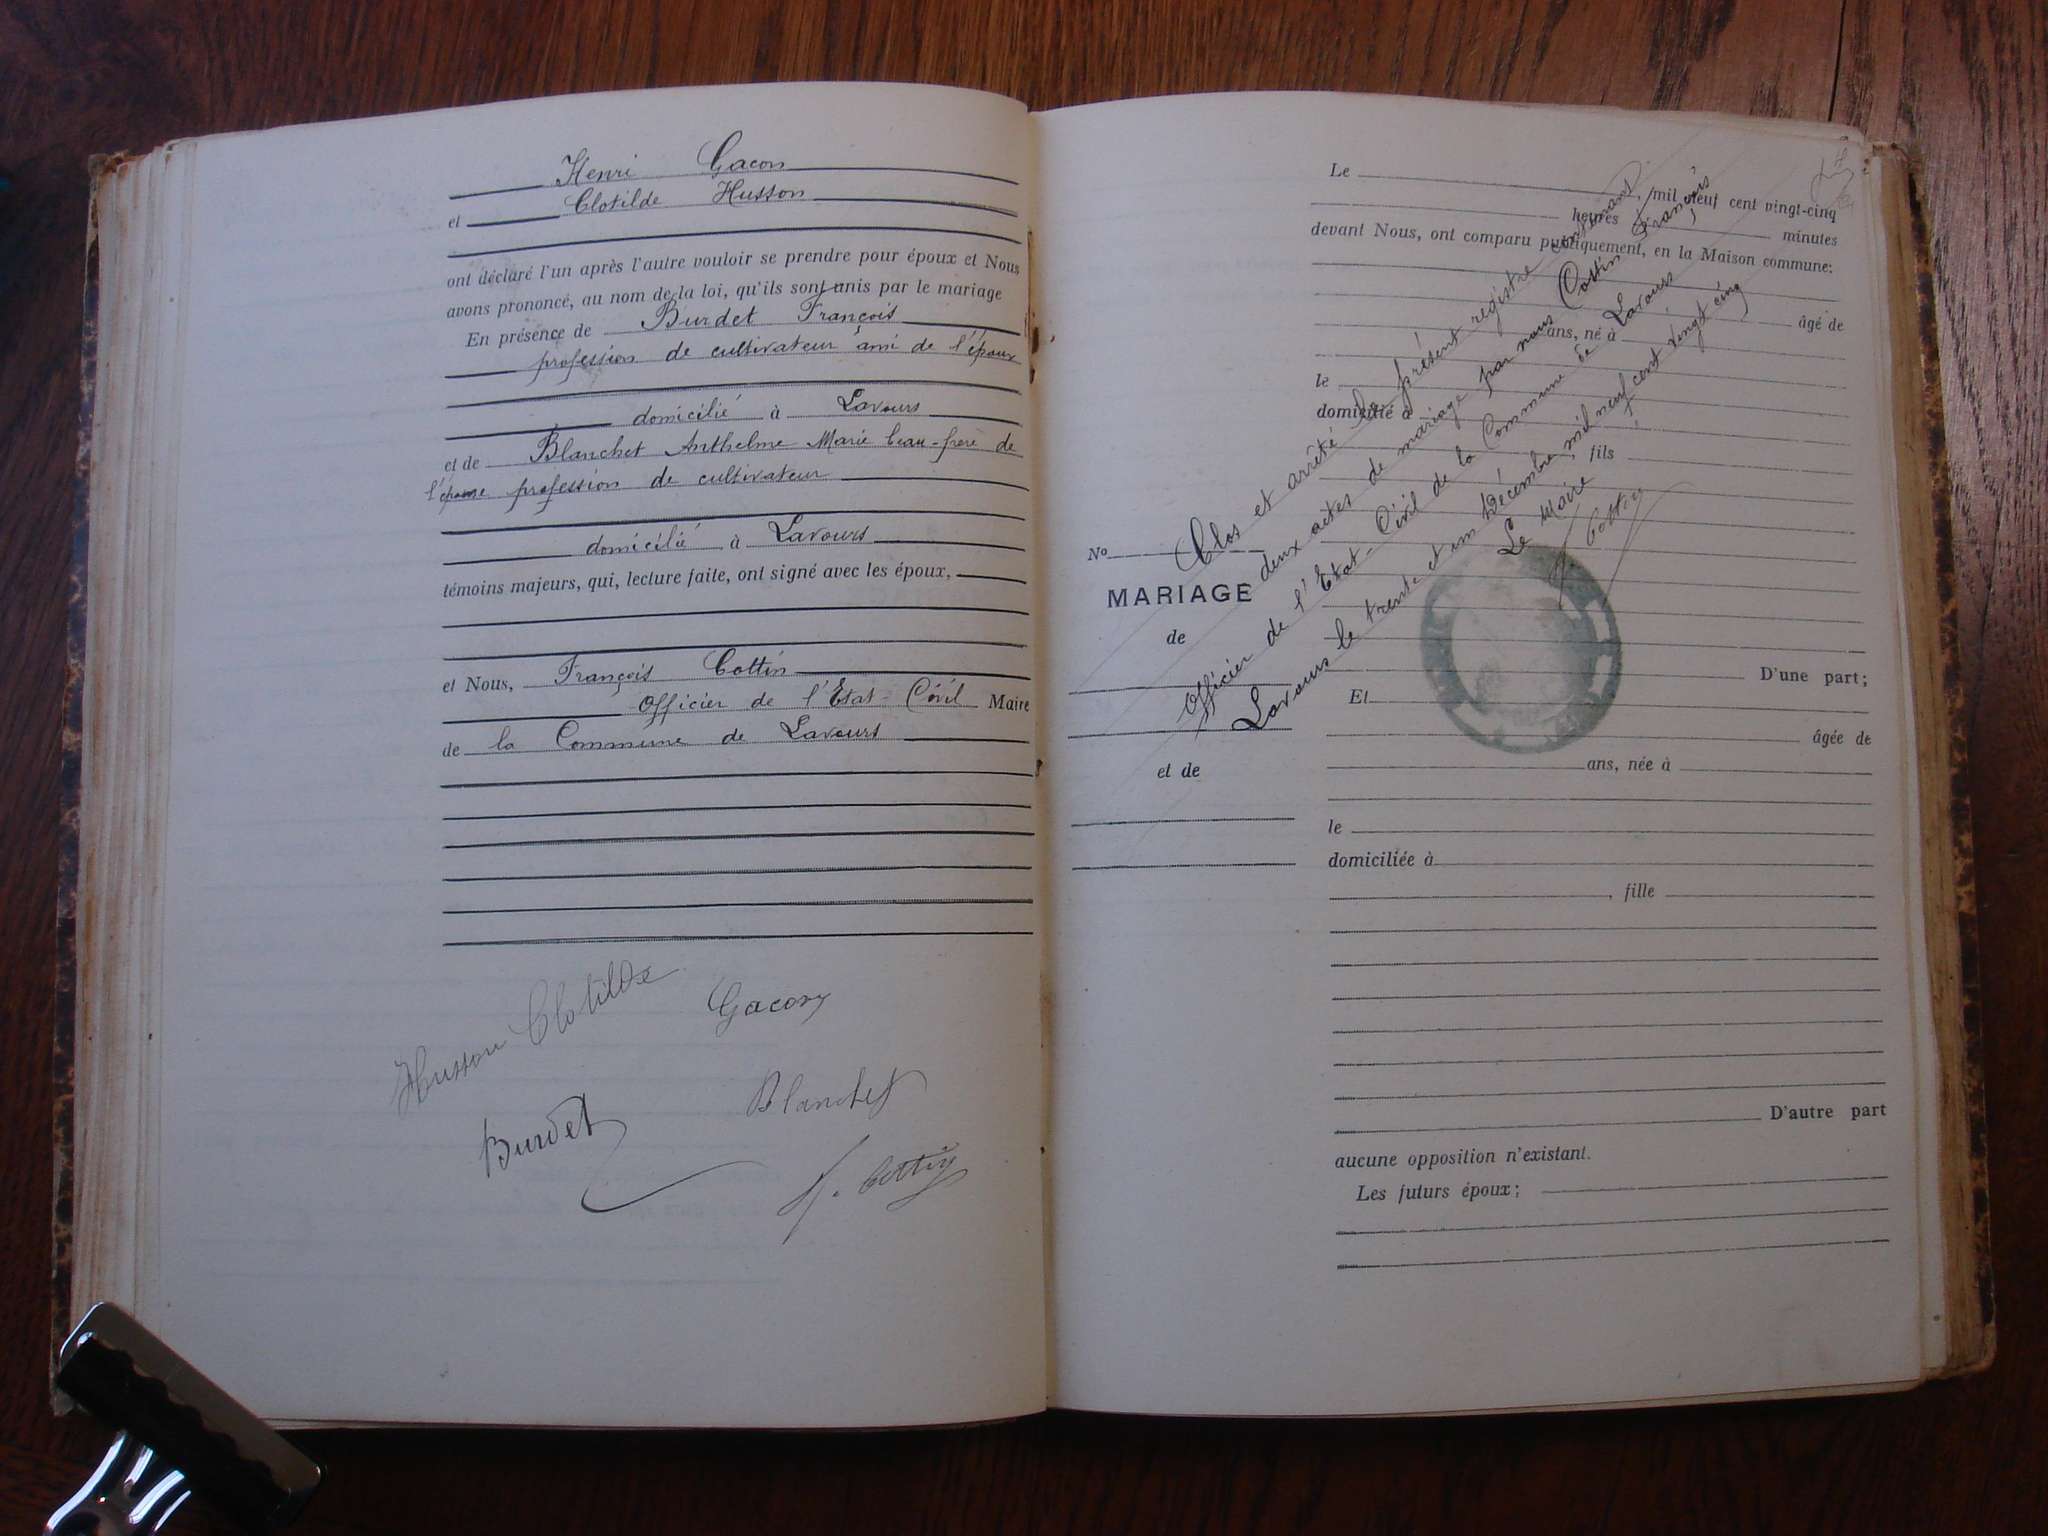 Henri Gacon
et Clotilde Husson
ont déclaré l'un après l'autre vouloir se prendre pour époux et Nous
avons prononcé, au nom de la loi, qu'ils sont unis par le mariage
En présence de Burdet François
profession de cultivateur ami de l'époux
domicilié à Lavours
et de Blanchet Anthelme Marie beau-frère de
l'épouse profession de cultivateur
domicilié à Lavours
témoins majeurs, qui, lecture faite, ont signé avec les époux,
et Nous, François Cottin
Officier de l'Etat-Civil Maire
de la Commune de Lavours
Husson Clotilde
Gacon
Burdet
Blanchet
F. Cottin
Le , mil neuf cent vingt-cinq
heures minutes
devant Nous, ont comparu publiquement, en la Maison commune:
âgé de
ans, né à
le
domicilié à
, fils
No
MARIAGE
de
et de
D'une part;
Et
âgée de
ans, née à
le
domiciliée à
, fille
D'autre part
aucune opposition n'existant.
Les futurs époux;
Clos et arrêté le présent registre contenant
deux actes de mariage par nous Cottin François
Officier de l'Etat-Civil de la Commune de Lavours
Lavours le trente et un Décembre mil neuf cent vingt cinq
Le Maire
F. Cottin